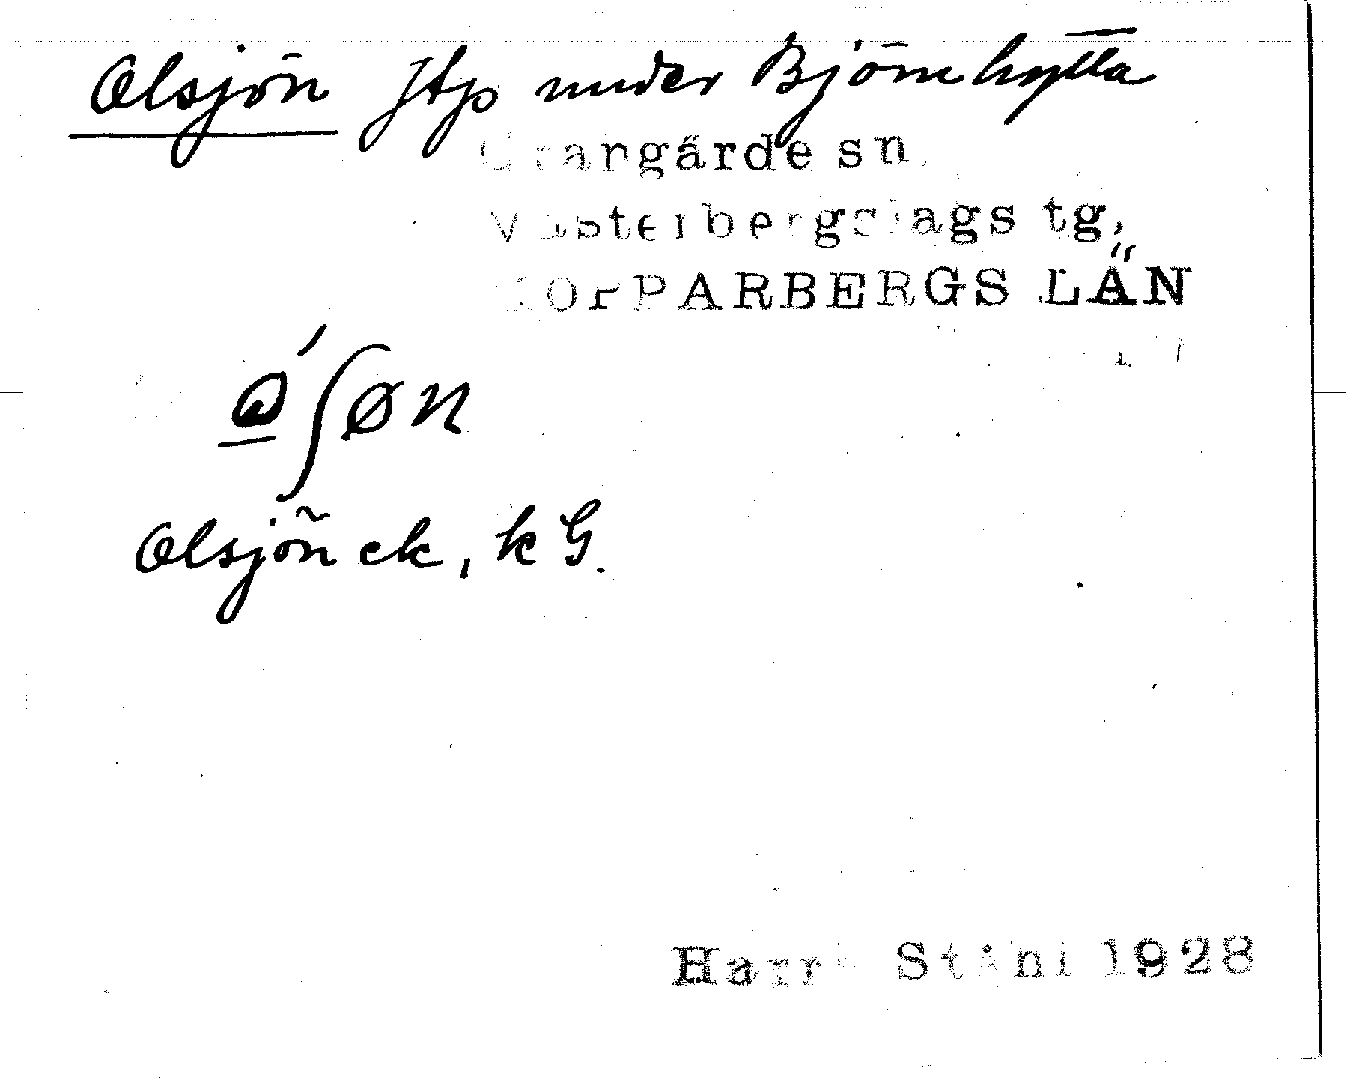 Olsjön ftp under Björnhytta
Grangärde sn.
Västerbergslags tg,
KOPPARBERGS LÄN
Olsjön ek, kG.
Harry Ståhl 1928